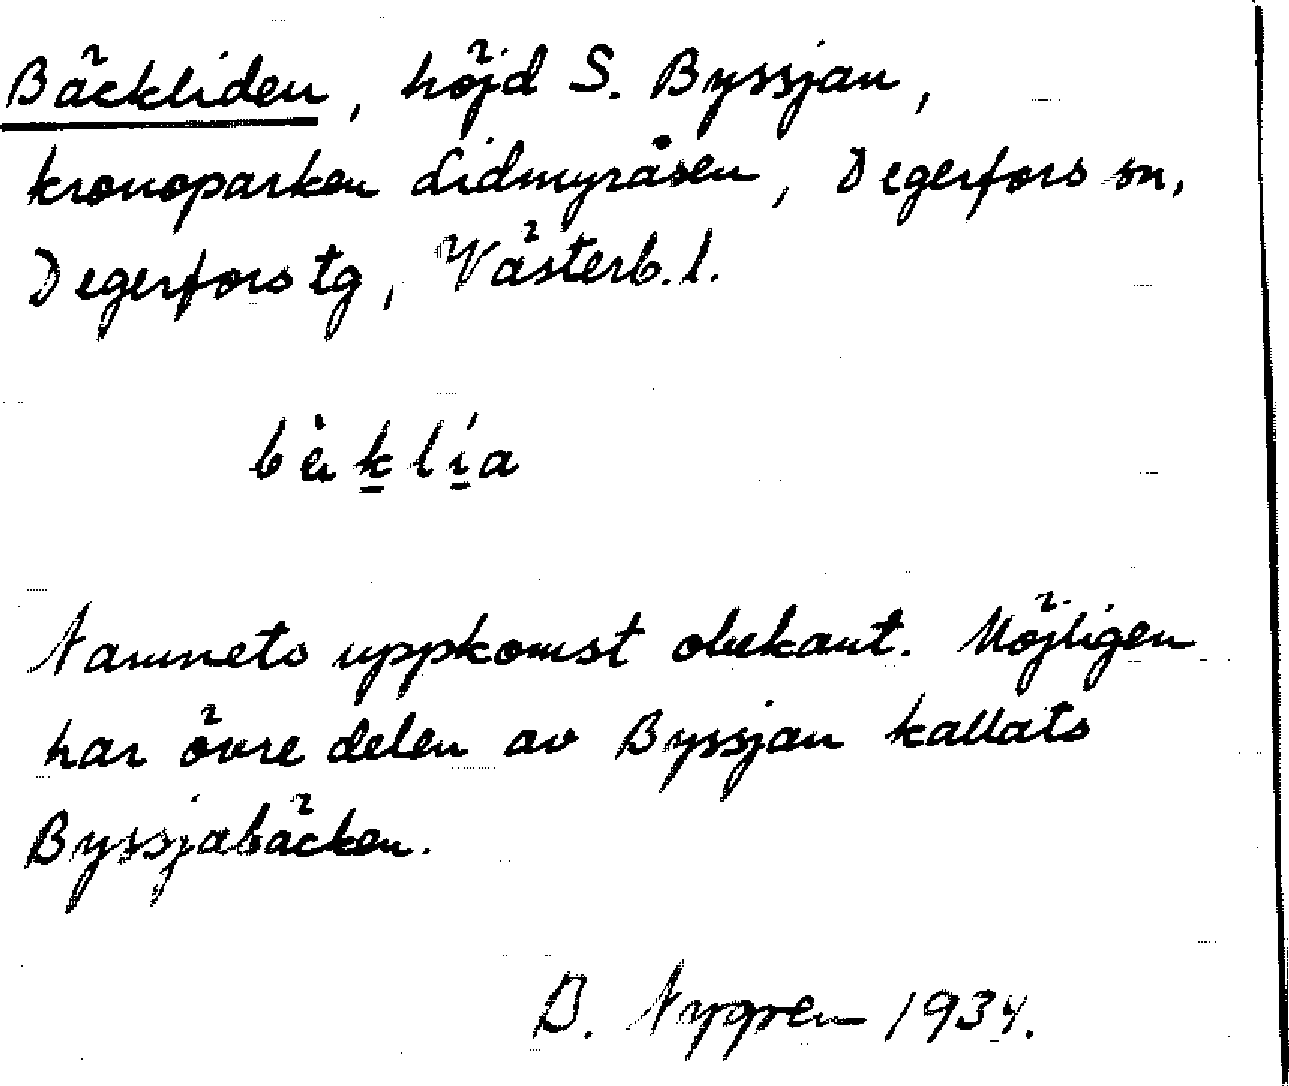 Bäckliden, höjd S. Byssjan,
kronoparken Lidmyråsen, Degerfors sn,
Degerfors tg, Västerb. l.
Namnets uppkomst obekant. Möjligen
har övre delen av Byssjan kallats
Byssjabäcken.
B. Nygren 1934.